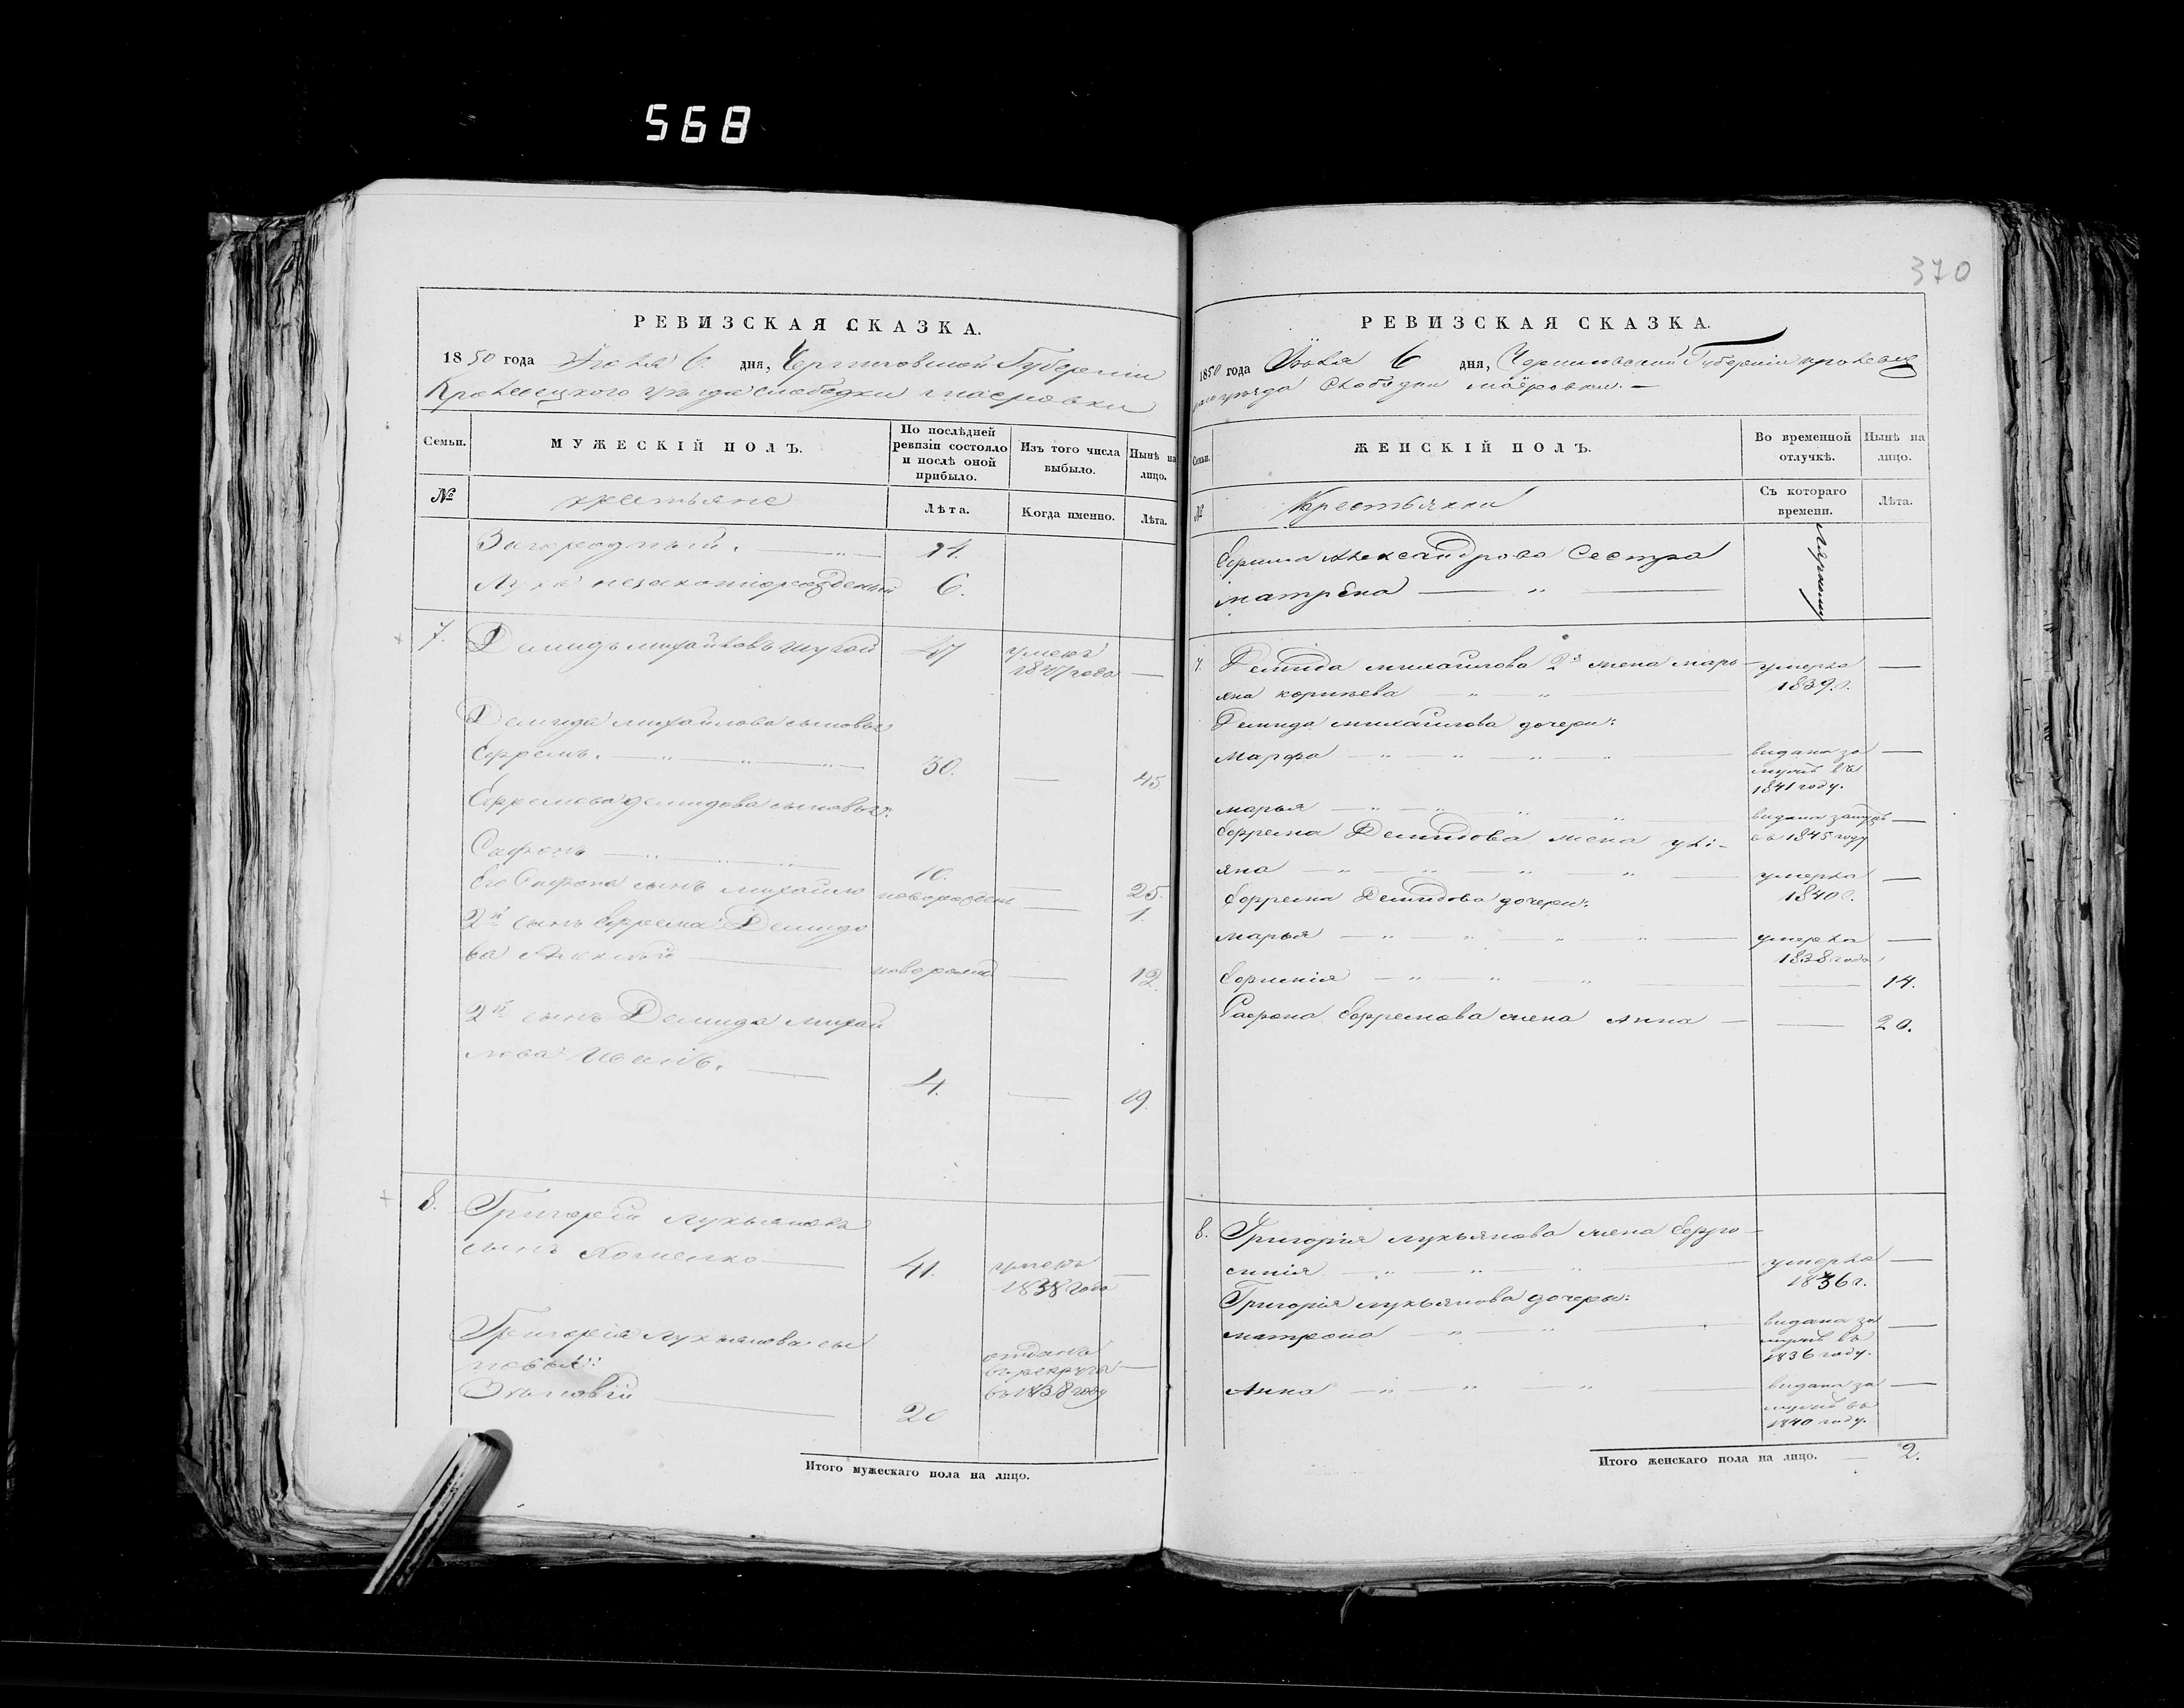 568
370
РЕВИЗСКАЯ СКАЗКА.
1850 года Июля 6. дня, Черниговской Губерніи
Кролевецкого уезда слободки маеровки
Семьи.
МУЖЕСКІЙ ПОЛЪ.
По послѣдней ревизіи состояло и послѣ оной прибыло.
Изъ того числа выбыло.
Нынѣ на лицо.
№
крестьяне
Лѣта.
Когда именно.
Лѣта.
Загородный.
Лука незаконорожденый 6.
7. Демидъ михайловъ 47 умеръ
1847 года —
Демида михайлова сыновья
Ефремъ. 30. — 45
Ефремова демидова сыновья:
Сафронъ 10. — 25.
Его Сафрона сынъ михайло новорожден — 1.
2й сынъ Ефрема Демидо
ва новорожд — 12.
2й сынъ Демида михай
лова Иванъ. 4. — 19.
8. Григорій лукьяновъ
сынъ 41. умеръ —
1838 года
Григорія лукьянова сы
новья: отданъ
въ рекруты —
Зиновій 20 въ 1838 году
Итого мужескаго пола на лицо.
РЕВИЗСКАЯ СКАЗКА.
1850 года Июля 6 дня, Черниговской Губерніи кролевец
каго уезда Слободки маёровки. —
Семьи.
ЖЕНСКІЙ ПОЛЪ.
Во временной отлучкѣ.
Нынѣ на лицо.
№
Крестьянки
Съ котораго времени.
Лѣта.
Ефима Александрова Сестра
матрёна
7. Демида михайлова 2я жена марь- умерла —
яна корнѣева 1839 г.
Демида михайлова дочери:
Марфа видана за —
мужъ въ
1841 году.
марья видана замужъ —
Ефрема Демидова жена улі- въ 1845 году
яна умерла —
Ефрема Демидова дочери: 1840 г.
марья умерла —
1838 года
Ефимія — 14.
Сафрона Ефремова жена Анна — — 20.
8. Григорія лукьянова жена Ефро-
синія умерла —
1836 г.
Григорія лукьянова дочери:
матрона видана за —
мужъ въ
1836 году.
Анна видана за —
мужъ въ
1840 году.
Итого женскаго пола на лицо. — 2.